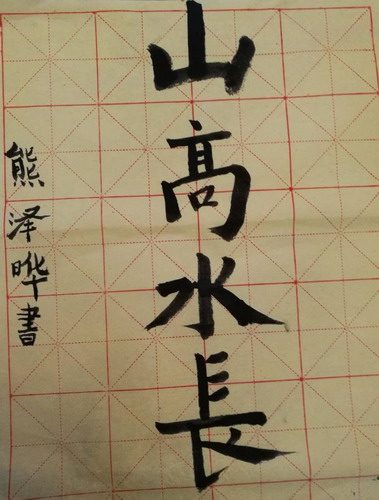 山髙水長
熊泽晔書